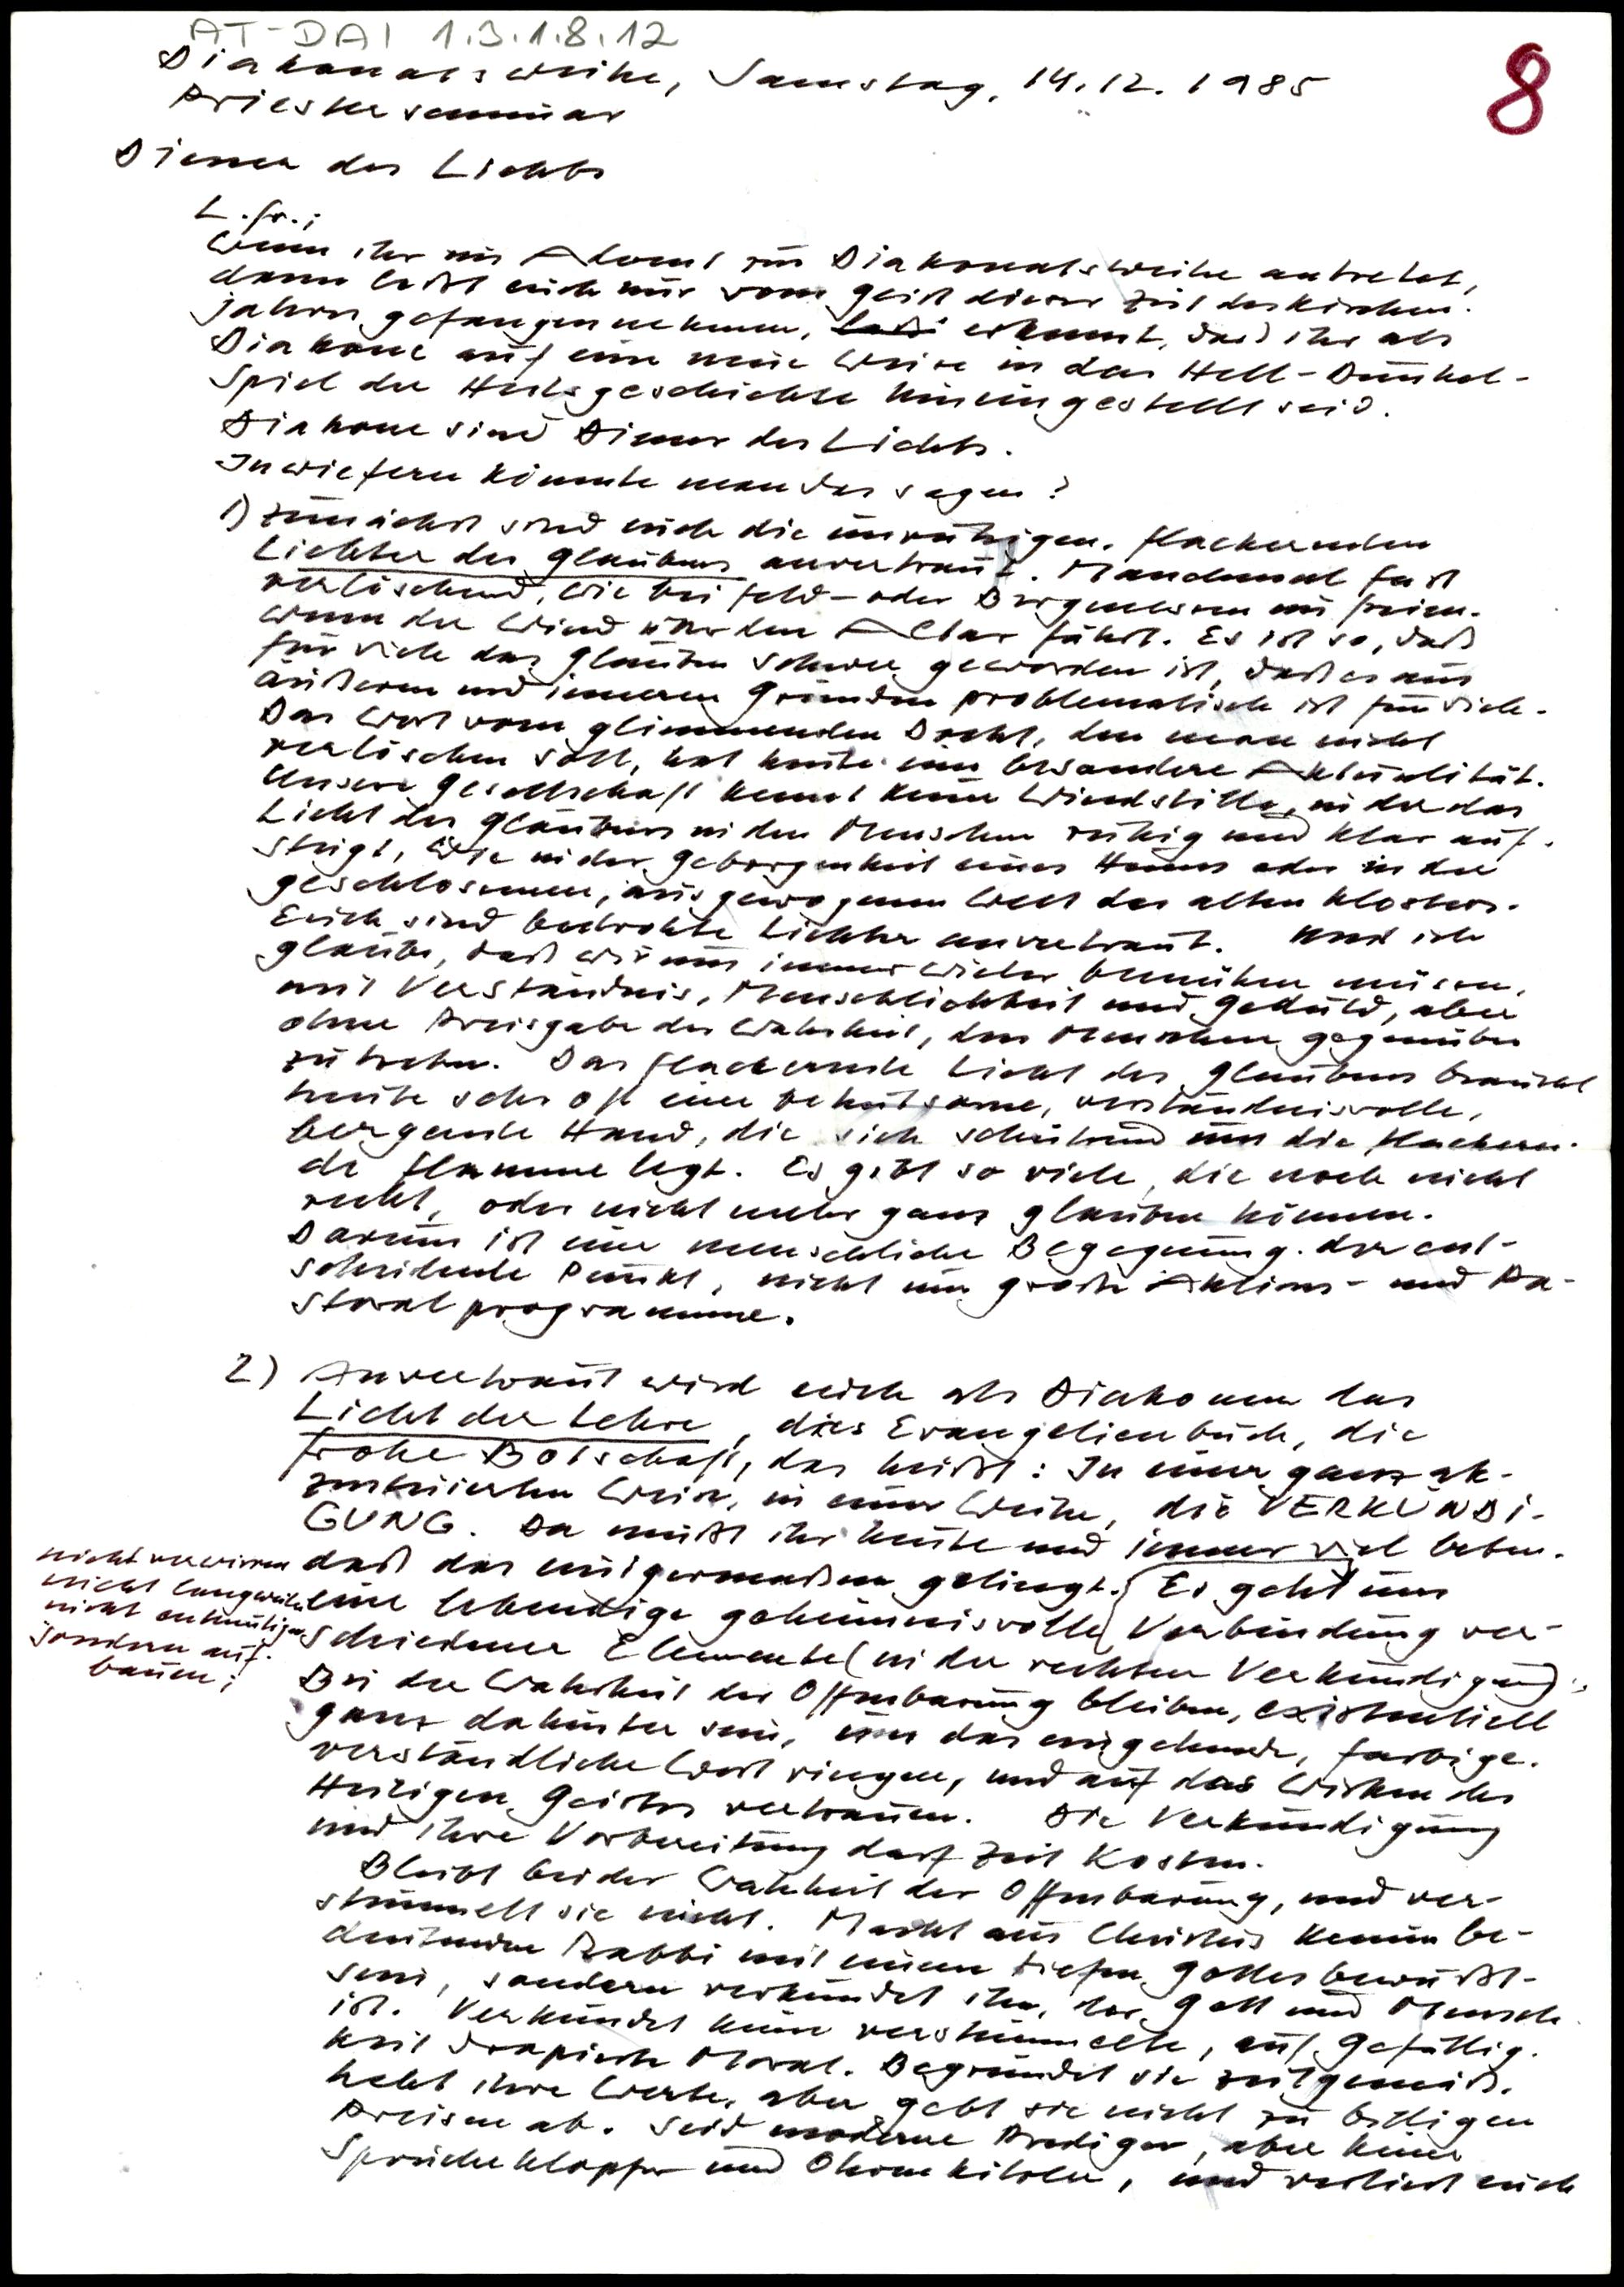 AT-DAI 1.3.1.8.12
8
Diakonatsweihe, Samstag, 14.12.1985
Priesterseminar
Diener des Lichts
L. Fr.;
Wenn ihr im Advent zur Diakonatsweihe antretet,
dann laßt euch nur vom Geist dieser Zeit des Kirchen-
jahres gefangennehmen, erkennt, daß ihr als
Diakone auf eine neue Weise in das Hell-Dunkel-
Spiel der Heilsgeschichte hineingestellt seid.
Diakone sind Diener des Lichts.
Inwiefern könnte man das sagen?
1) Zunächst sind euch die unruhigen, flackernden
Lichter des Glaubens anvertraut. Manchmal fast
verlöschend, wie bei Feld- oder Bergmessen im Freien,
wenn der Wind über den Altar fährt. Es ist so, daß
für viele das Glauben schwer geworden ist, daß es aus
äußeren und inneren Gründen problematisch ist für viele.
Das Wort vom glimmenden Docht, den man nicht
verlöschen soll, hat heute eine besondere Aktualität.
Unsere Gesellschaft kennt keine Windstille, in der das
Licht des Glaubens in den Menschen ruhig und klar auf-
steigt, wie in der Geborgenheit eines Hauses oder in der
geschlossenen, ausgewogenen Welt des alten Klosters.
Euch sind bedrohte Lichter anvertraut. Und ich
glaube, daß wir uns immer wieder bemühen müssen,
mit Verständnis, Menschlichkeit und Geduld, aber
ohne Preisgabe der Wahrheit, den Menschen gegenüber
zu treten. Das flackernde Licht des Glaubens braucht
heute sehr oft eine behutsame, verständnisvolle,
bergende Hand, die sich schützend um die flackern-
de Flamme legt. Es gibt so viele, die noch nicht
recht, oder nicht mehr ganz glauben können.
Darum ist eine menschliche Begegnung der ent-
scheidende Punkt, nicht nur große Aktions- und Pa-
storalprogramme.
2) Anvertraut wird euch als Diakonen das
Licht der Lehre, das Evangelienbuch, die
Frohe Botschaft, das heißt: In einer ganz ak-
zentuierten Weise, in einer Weihe, die VERKÜNDI-
GUNG. Da müßt ihr heute und immer viel beten,
daß das einigermaßen gelingt. Es geht um
eine lebendige geheimnisvolle Verbindung ver-
schiedener Elemente (in der rechten Verkündigung):
nicht verwirren
nicht langweilen
nicht entmutigen
sondern auf-
bauen;
Bei der Wahrheit der Offenbarung bleiben, existentiell
ganz dahinter sein, um das eingehende, farbige,
verständliche Wort ringen, und auf das Wirken des
Heiligen Geistes vertrauen. Die Verkündigung
und ihre Vorbereitung darf Zeit kosten.
Bleibt bei der Wahrheit der Offenbarung, und ver-
stümmelt sie nicht. Macht aus Christus keinen be-
deutenden Rabbi mit einem tiefen Gottesbewußt-
sein, sondern verkündet ihn, der Gott und Mensch
ist. Verkündet keine verstümmelte, auf Gefällig-
keit drapierte Moral. Begründet sie zeitgemäß,
hebt ihre Werte, aber gebt sie nicht zu billigen
Preisen ab. Seid moderne Prediger, aber keine
Sprücheklopfer und Ohrenkitzler, und verliert euch